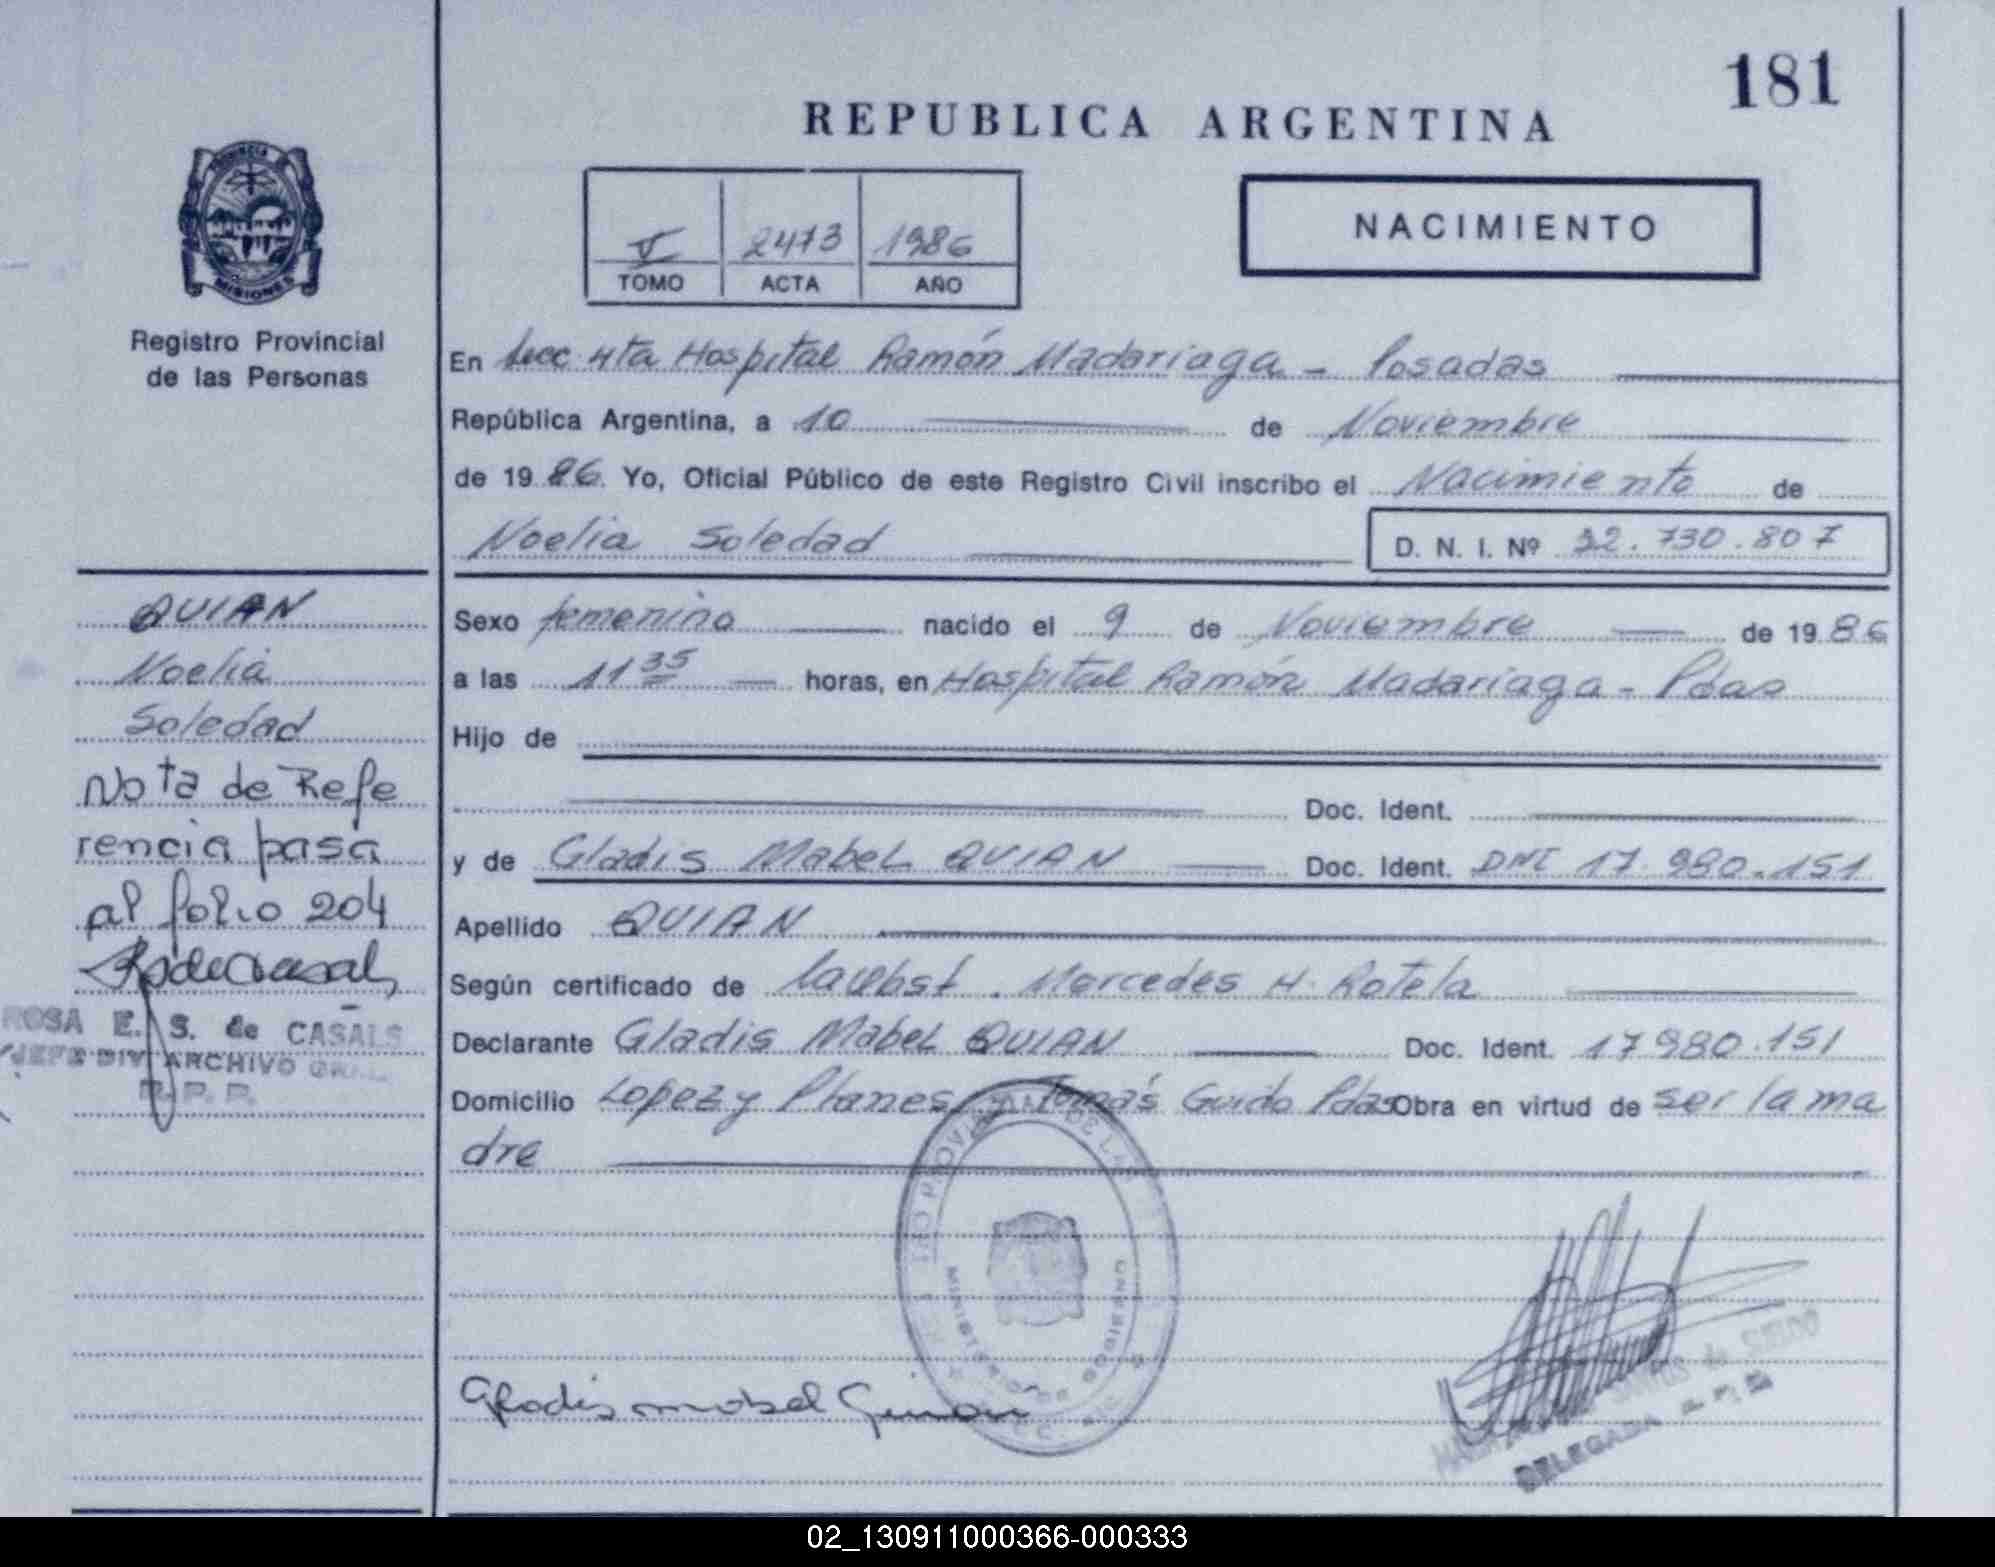 181
REPUBLICA ARGENTINA
NACIMIENTO
V 2473 1986
TOMO ACTA AÑO
PROVINCIA DE
MISIONES
Registro Provincial
de las Personas
En Secc 4ta Hospital Ramón Madariaga - Posadas
República Argentina, a 10 de Noviembre
de 1986. Yo, Oficial Público de este Registro Civil inscribo el Nacimiento de
Noelia Soledad
D. N. I. Nº 32.730.807
QUIAN
Noelia
Soledad
Nota de Refe
rencia pasa
al folio 204
ROSA E. S. de CASALS
JEFE DIV ARCHIVO GRAL.
R. P. P.
Sexo femenino nacido el 9 de Noviembre de 1986
a las 11 35 horas, en Hospital Ramón Madariaga - Pdas
Hijo de
Doc. Ident.
y de Gladis Mabel QUIAN Doc. Ident. DNI 17.980.151
Apellido QUIAN
Según certificado de Mercedes H. Rotela
Declarante Gladis Mabel QUIAN Doc. Ident. 17980.151
Domicilio Lopez y Planes y Tomás Guido Pdas Obra en virtud de ser la ma
dre
Gladis mabel
DELEGADA
02_130911000366-000333